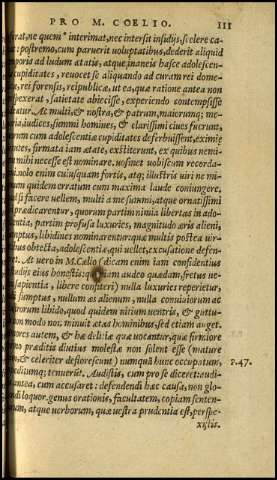 PRO M. COELIO. 111
ſtrat, ne quem interimat, nec interſit inſidijs, ſi elere ca-
at: poſtremo, cum paruerit uoluptatibus, dederit aliquid
mporis ad ludum ætatis, atque inaneis haſce adoleſcen-
cupiditates, reuocet ſe aliquando ad curam rei dome-
ca, rei forenſis, reipublicæ, ut ea, quæ ratione antea non
ſpexerat, ſatietate abieciſſe, experiendo contempſiſſe
deatur. At multi, & noſtra, & patrum, maiorumq; me-
oria, iudices, ſummi homines, & clariſſimi ciues fuerunt,
orum cum adoleſcentiæ cupiditates deferbuiſſent, eximiæ
utes, firmata iam ætate, exſtiterunt. ex quibus nemi-
m mihi neceſſe eſt nominare. uoſmet uobiſcum recorda-
ni. nolo enim cuiuſquam fortis, atq; illuſtris uiri ne mi-
mum quidem erratum cum maxima laude coniungere.
od ſi facere uellem, multi a me ſummi, atque ornatiſſimi
i prædicarentur, quorum partim nimia libertas in ado-
ſcentia, partim profuſa luxuries, magnitudo æris alieni,
mptus, libidines nominarentur: quæ multis poſtea uir-
ibus obtecta, adoleſcentiæ, qui uellet, excuſatione defen-
ret. At uero in M. Cælio (dicam enim iam confidentius
ſtudijs eius honeſtis: quoniam audeo quædam, fretus ue-
ſapientia, libere confiteri) nulla luxuries reperietur,
lli ſumptus, nullum æs alienum, nulla conuiuiorum ac
trorum libido, quod quidem uitium uentris, & guttu-
non modo non minuit ætas hominibus, ſed etiam auget.
mores autem, & hæ deliciæ quæ uocantur, quæ firmiore
imo præditis diutius moleſtæ non ſolent eſſe (mature
m, & celeriter defloreſcunt) numquã hunc occupatum,
peditumq; tenuerũt. Audiſtis, cum pro ſe diceret: audi-
antea, cum accuſaret: defendendi hæc cauſa, non glo-
ndi loquor. genus orationis, facultatem, copiam ſenten-
rum, atque uerborum, quæ ueſtra prudentia eſt, perſpe-
xiſtis.
P. 47.